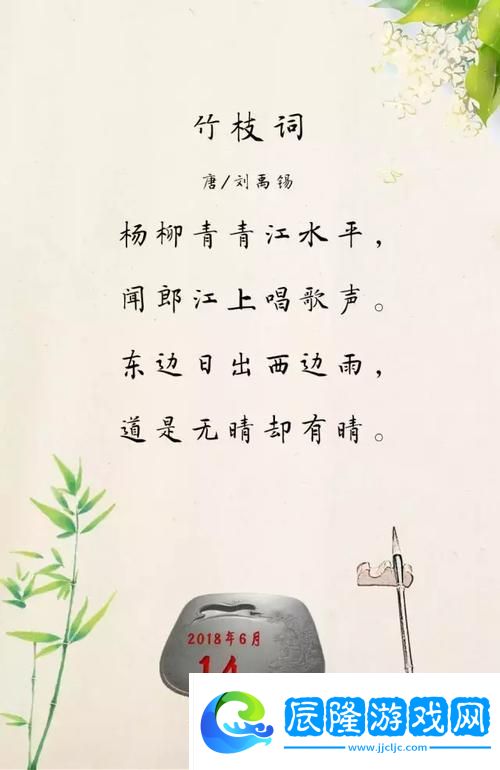 竹枝词
唐/刘禹锡
杨柳青青江水平，
闻郎江上唱歌声。
东边日出西边雨，
道是无晴却有晴。
2018年6月
14
辰隆游戏网
www.jjcljc.com